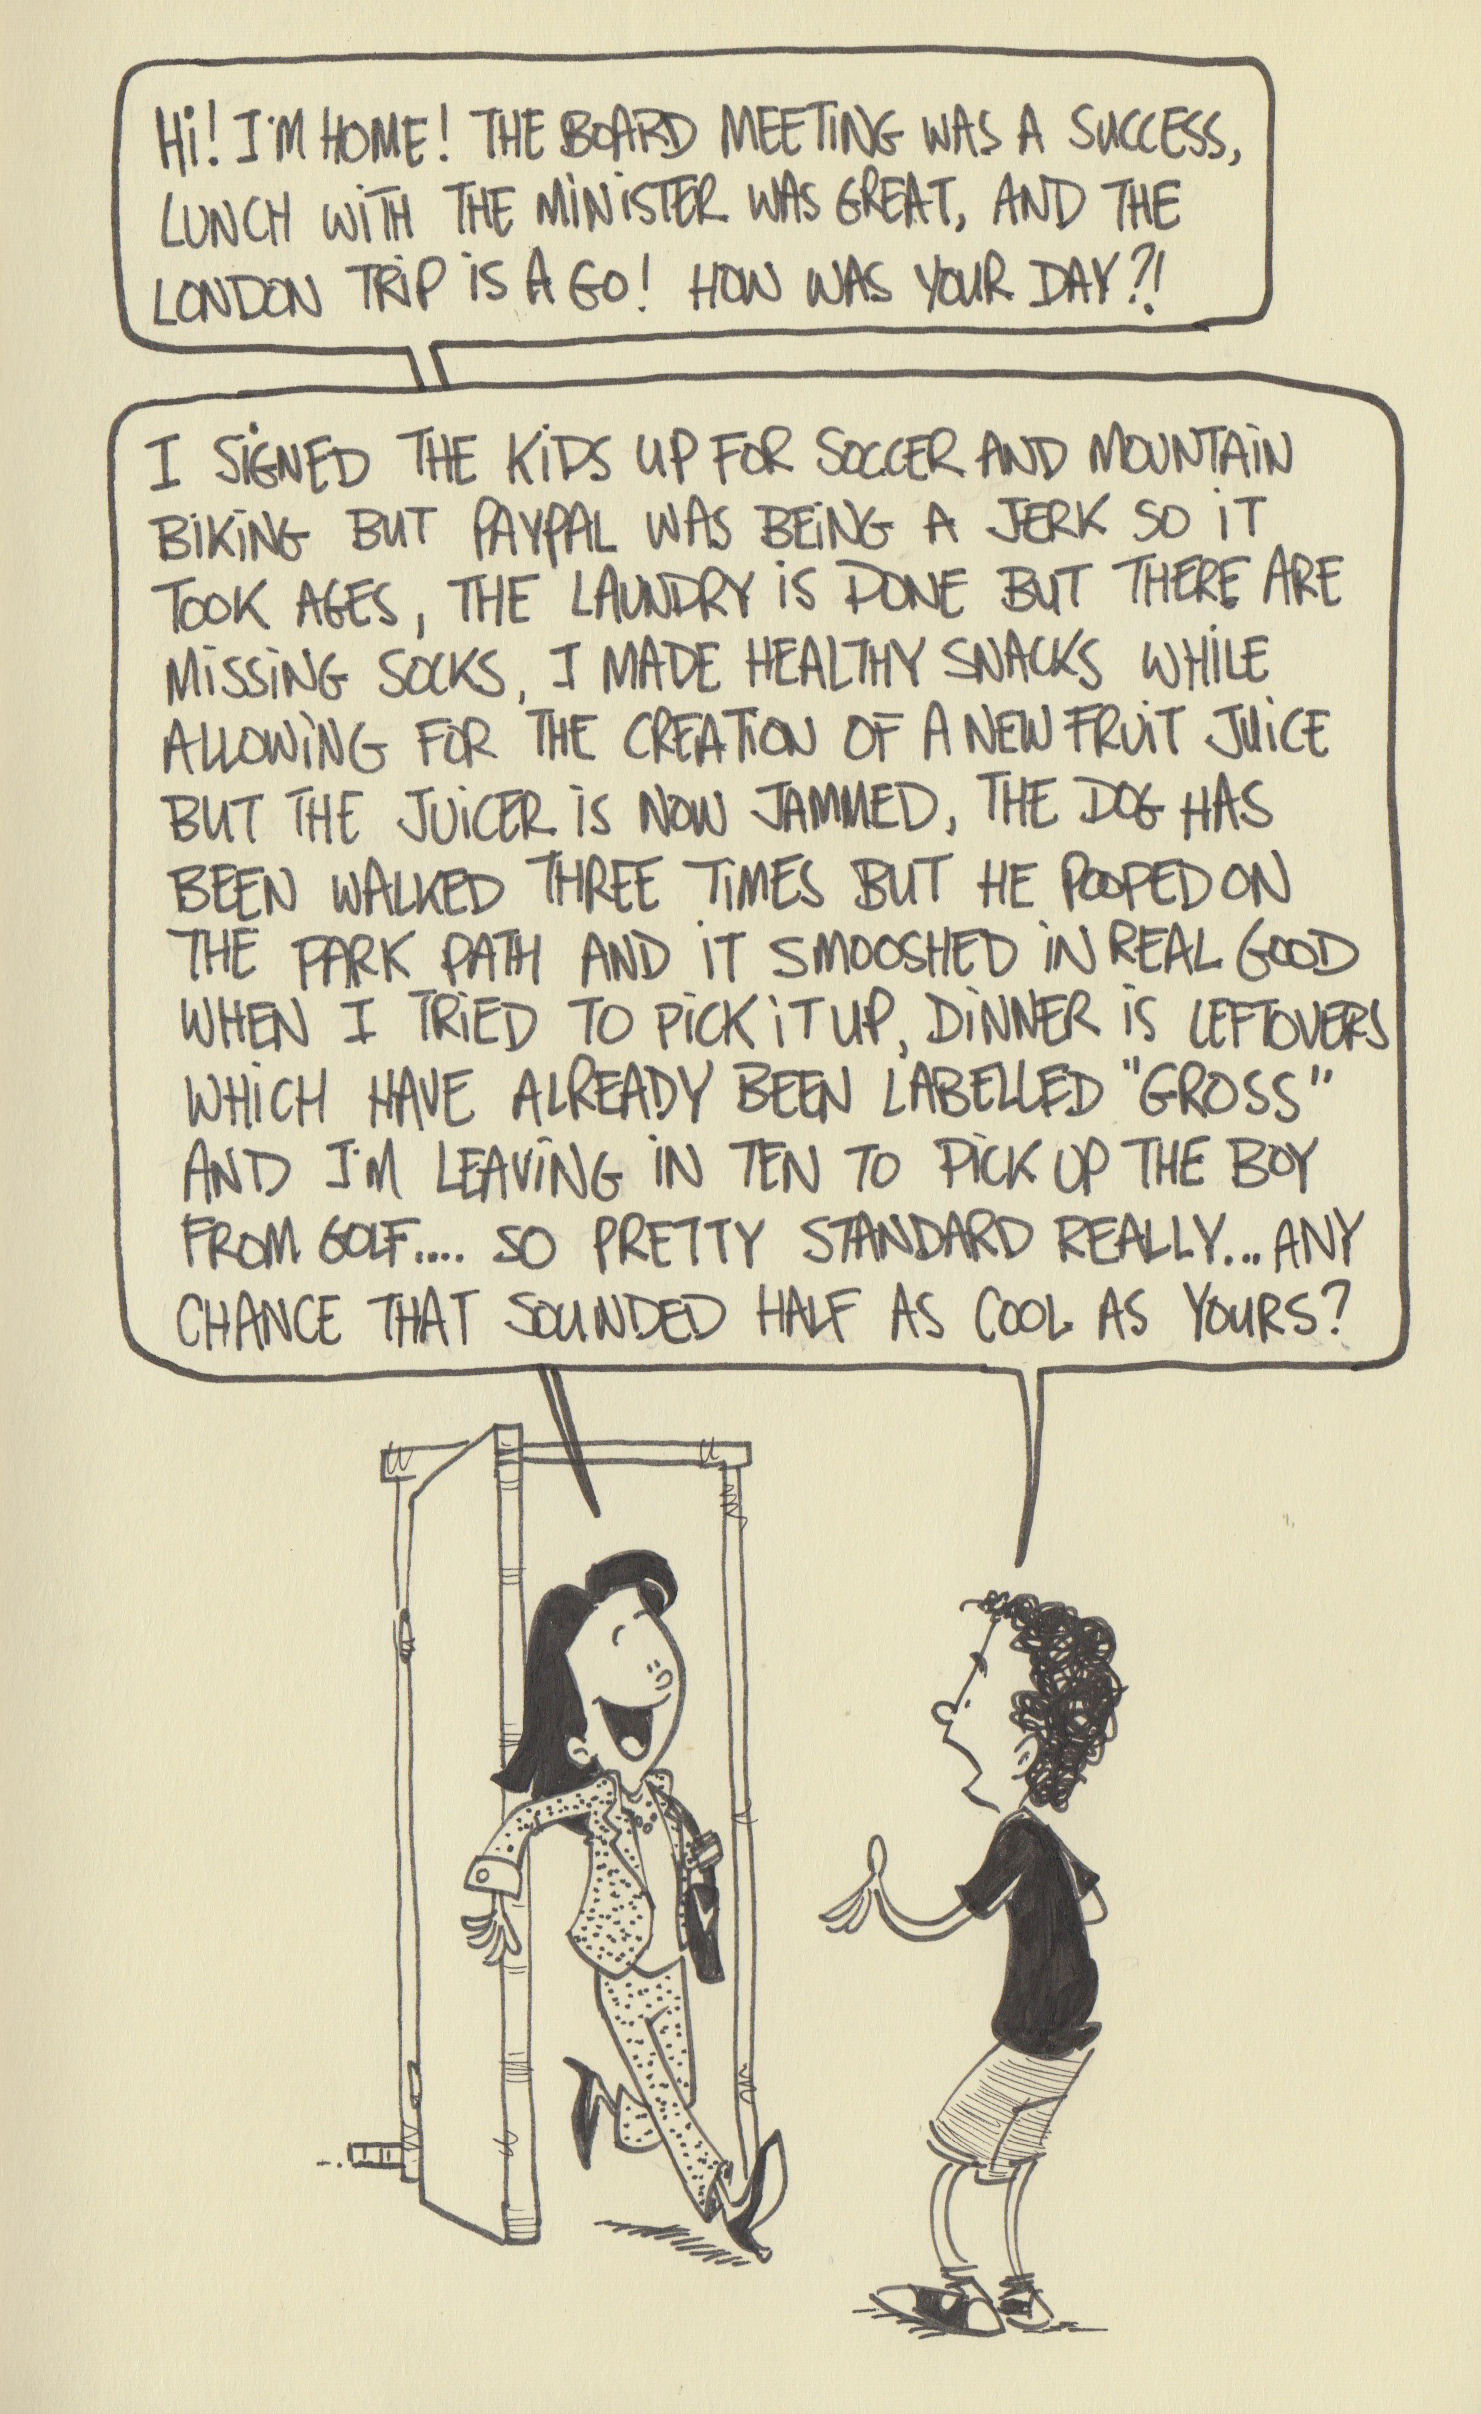 Hi! I'M HOME! THE BOARD MEETING WAS A SUCCESS,
LUNCH WITH THE MINISTER WAS GREAT, AND THE
LONDON TRIP IS A GO! HOW WAS YOUR DAY?!
I SIGNED THE KIDS UP FOR SOCCER AND MOUNTAIN
BIKING BUT PAYPAL WAS BEING A JERK SO IT
TOOK AGES, THE LAUNDRY IS DONE BUT THERE ARE
MISSING SOCKS, I MADE HEALTHY SNACKS WHILE
ALLOWING FOR THE CREATION OF A NEW FRUIT JUICE
BUT THE JUICER IS NOW JAMMED, THE DOG HAS
BEEN WALKED THREE TIMES BUT HE POOPED ON
THE PARK PATH AND IT SMOOSHED IN REAL GOOD
WHEN I TRIED TO PICK IT UP, DINNER IS LEFTOVERS
WHICH HAVE ALREADY BEEN LABELLED "GROSS"
AND I'M LEAVING IN TEN TO PICK UP THE BOY
FROM GOLF.... SO PRETTY STANDARD REALLY... ANY
CHANCE THAT SOUNDED HALF AS COOL AS YOURS?